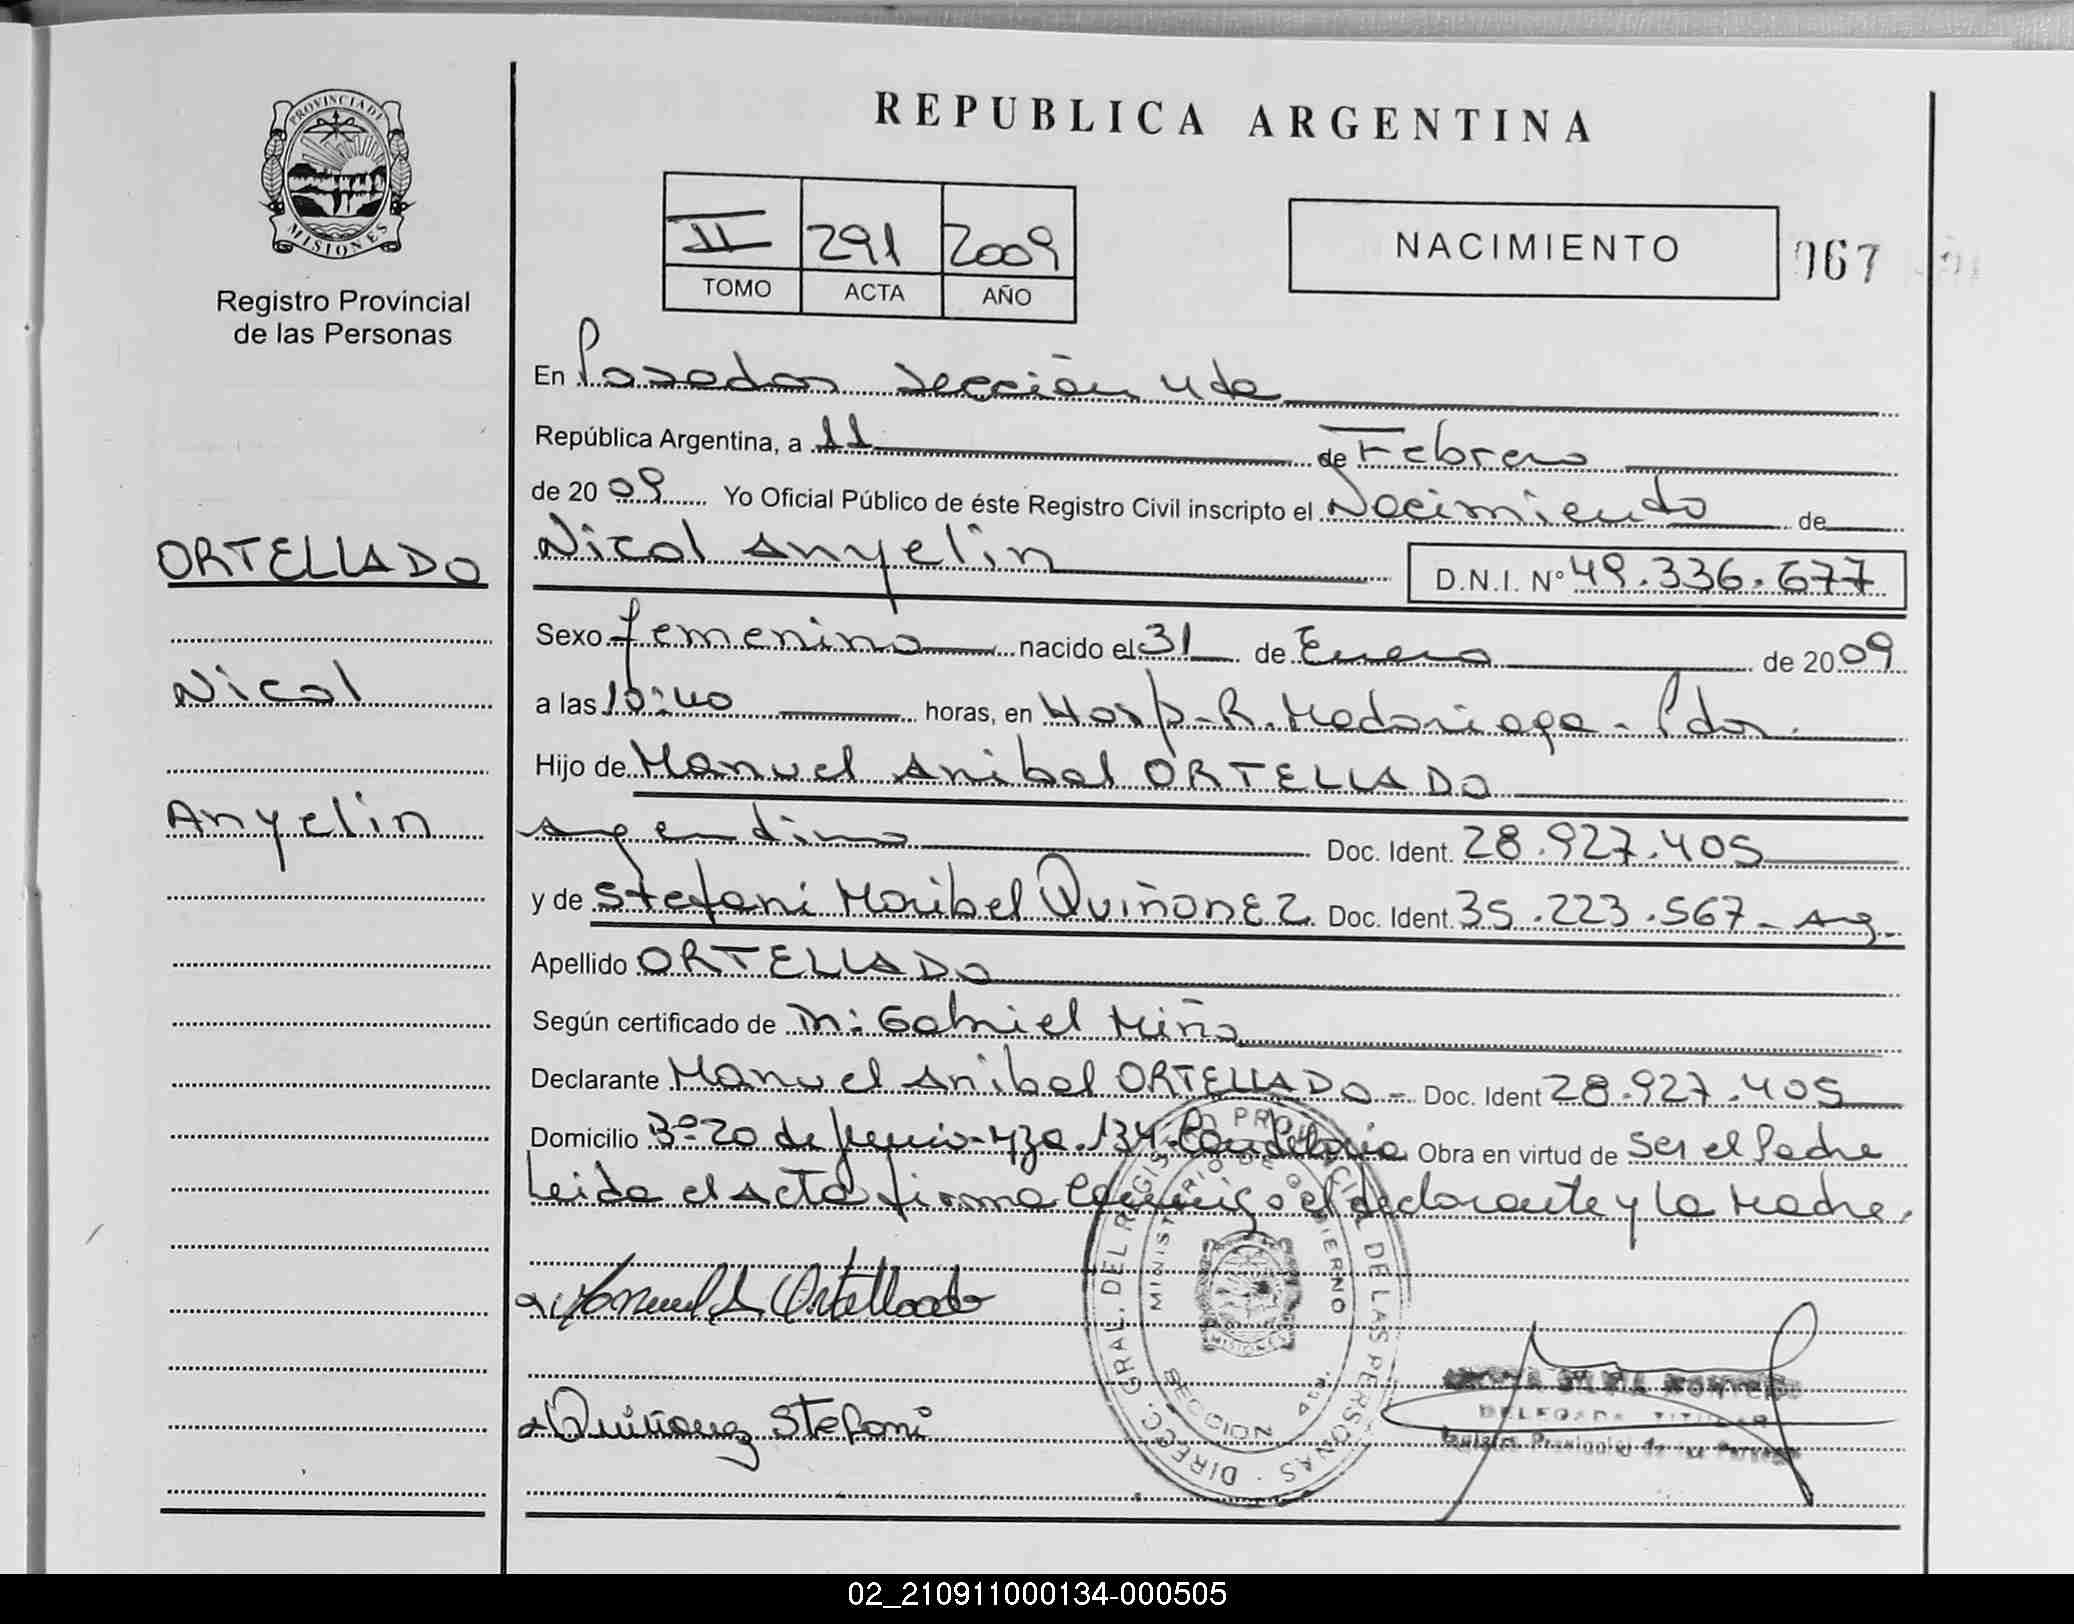 PROVINCIA DE
MISIONES
Registro Provincial
de las Personas
ORTELLADO
Nicol
Anyelin
REPUBLICA ARGENTINA
II 291 2009
TOMO ACTA AÑO
NACIMIENTO
067
En Posadas sección 4ta
República Argentina, a 11 de Febrero
de 2009 Yo Oficial Público de éste Registro Civil inscripto el Nacimiento de
Nicol Anyelin D.N.I. Nº 49.336.677
Sexo femenino nacido el 31 de Enero de 2009
a las 10:40 horas, en Hosp. R. Madariaga - Pdas.
Hijo de Manuel Anibal ORTELLADO
argentino Doc. Ident. 28.927.405
y de Stefani Maribel QuiñonEz Doc. Ident. 35.223.567 - Arg.
Apellido ORTELLADO
Según certificado de Gabriel Miño
Declarante Manuel Anibal ORTELLADO - Doc. Ident 28.927.405
Domicilio Bº 20 de Junio - 134 - Candelaria Obra en virtud de Ser el Padre
Leida el acta firma conmigo el declarante y la Madre.
Manuel A Ortellado
Quiñonez Stefani
DIRECC. GRAL. DEL REGISTRO PROVINCIAL DE LAS PERSONAS
MINISTERIO DE GOBIERNO
SECCION 4ta.
MISIONES
DELEGADA TITULAR
Registro Provincial de las Personas
02_210911000134-000505